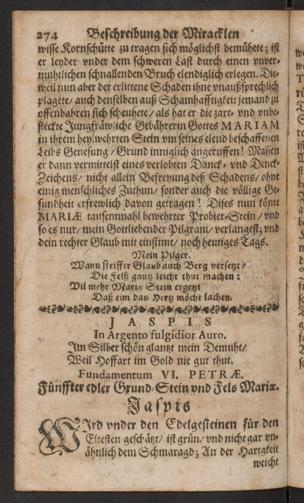 274 Beschreibung der Miracklen
wisse Kornschütte zu tragen sich möglichst bemühete; ist
er leyder vnder dem schweren Last durch einen vnver-
muhtlichen schnallenden Bruch elendiglich erlegen. Die-
weil nun aber der erlittene Schaden ihne vnaußsprechlich
plagete/ auch denselben auß Schamhafftigkeit jemand zu
offenbahren sich scheuhete/ als hat er die zart- vnd vnbe-
fleckte Jungfräwliche Gebährerin Gottes MARIAM
in ihrem hey wehrten Stein vm seines elend beschaffenen
Leibs Genesung/ Grund inniglich angeruffen! Massen
er dann vermittelst eines verlobten Danck- vnd Denck-
Zeichens/ nicht allein Befreyung deß Schadens/ ohne
einig menschliches Zuthun/ sonder auch die völlige Ge-
sundheit erfrewlich davon getragen! Dises nun könte
MARIÆ tausentmahl bewehrter Probier-Stein/ vnd
so es nur/ mein Gottliebender Pilgram/ verlangest; vnd
dein rechter Glaub mit einstimt/ noch heutiges Tags.
Mein Pilger.
Wann steiffer Glaub auch Berg versetzt/
Die Felß gantz leicht thut machen:
Vil mehr Mariæ Stein ergetzt
Daß eim das Hertz möcht lachen.
JASPIS
In Argento fulgidior Auro.
Im Silber schön glantzt mein Demuht/
Weil Hoffart im Gold nie gut thut.
Fundamentum VI. PETRÆ.
Fünffter edler Grund-Stein vnd Fels Mariæ.
Jaspis
WIrd vnder den Edelgesteinen für den
Eltesten geschätzt/ ist grün/ vnd nicht gar vn-
ähnlich dem Schmaragd; An der Hartigkeit
weicht